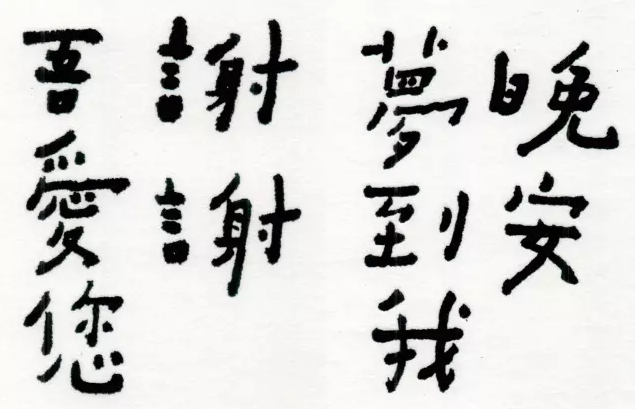 晚安
夢到我
謝謝
吾愛您